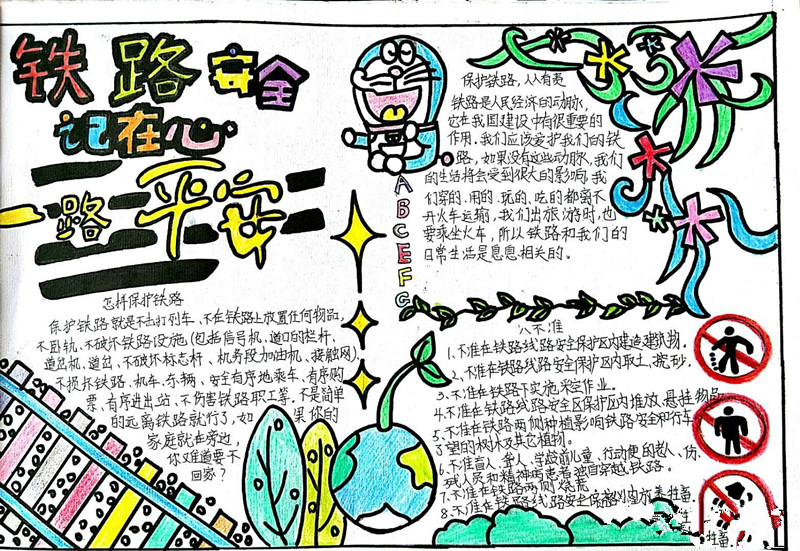 铁路安全
记在心
一路平安
怎样保护铁路
保护铁路就是不击打列车、不在铁路上放置任何物品,
不卧轨、不破坏铁路设施(包括信号机、道口的栏杆、
道岔机、道岔、不破坏标志杆、机务段加油机、接触网)、
不损坏铁路、机车、车辆、安全有序地乘车、有序购
票、有序进出站、不伤害铁路职工等、不是简单
的远离铁路就行了,如果你的
家庭就在旁边,
你难道要不
回家?
A
B
C
E
F
G
保护铁路,人人有责
铁路是人民经济的动脉,
它在我国建设中有很重要的
作用.我们应该爱护我们的铁
路,如果没有这些动脉,我们
的生活将会受到很大的影响,我
们穿的、用的、玩的、吃的都离不
开火车运输,我们出旅游时,也
要乘坐火车,所以铁路和我们的
日常生活是息息相关的。
八不准
1.不准在铁路线路安全保护区内建造建筑物.
2.不准在铁路线路安全保护区内取土、挖砂.
3.不准在铁路下实施采空作业.
4.不准在铁路线路安全区保护区内堆放、悬挂物品
5.不准在铁路两侧种植影响铁路安全和行车
了望的树木及其它植物.
6.不准盲人、聋人、学龄前儿童、行动不便的老人、伤、
残人员和精神病患者独自穿越铁路.
7.不准在铁路两侧烧荒
8.不准在铁路线路安全保护区内放养牲畜.
牲畜.